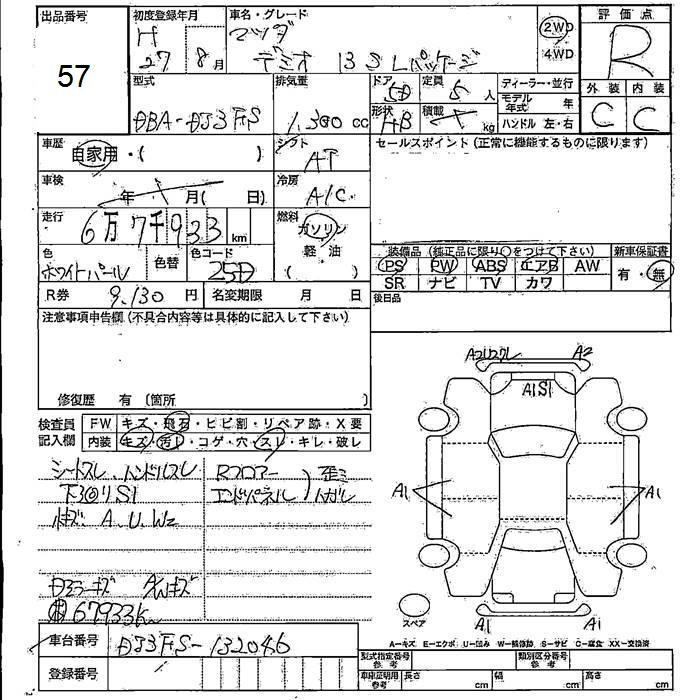 出品番号 初度登録年月 車名・グレード 2WD 評価点
57 H マツダ 4WD R
27 8月 デミオ 13S Lパッケージ
外装 内装
C C
型式 排気量 ドア 定員 ディーラー・並行
DBA-DJ3FS 1,300 cc 5D 5人 モデル年式 年
形状 積載 ハンドル 左・右
HB kg
車歴 自家用・( ) シフト AT セールスポイント(正常に機能するものに限ります)
車検 年 月( 日) 冷房 A/C
走行 6万7千933 km 燃料 ガソリン
軽・油
( )
色 ホワイトパール 色替 色コード 25D
装備品(純正品に限り○をつけて下さい) 新車保証書
PS PW ABS エアB AW 有・無
SR ナビ TV カワ
R券 9,130円 名変期限 月 日 後日品
注意事項申告欄(不具合内容等は具体的に記入して下さい)
修復歴 有 〔箇所 〕
検査員記入欄 FW キズ・飛石・ヒビ割・リペア跡・X要
内装 キズ・汚レ・コゲ・穴・スレ・キレ・破レ
シートスレ ハンドルスレ Rフロアー 歪ミ
下S1 エンドパネル
A.U.W2
Dミラーキズ
67933K
A2 A1S1
A1 A1
A1 A1
スペア
A-キズ E-エクボ U-凹み W-補修跡 S-サビ C-腐食 XX-交換済
車台番号 DJ3FS-132046
登録番号
型式指定番号 参考 類別区分番号 参考
車庫証明用 参考 長さ cm 幅 cm 高さ cm